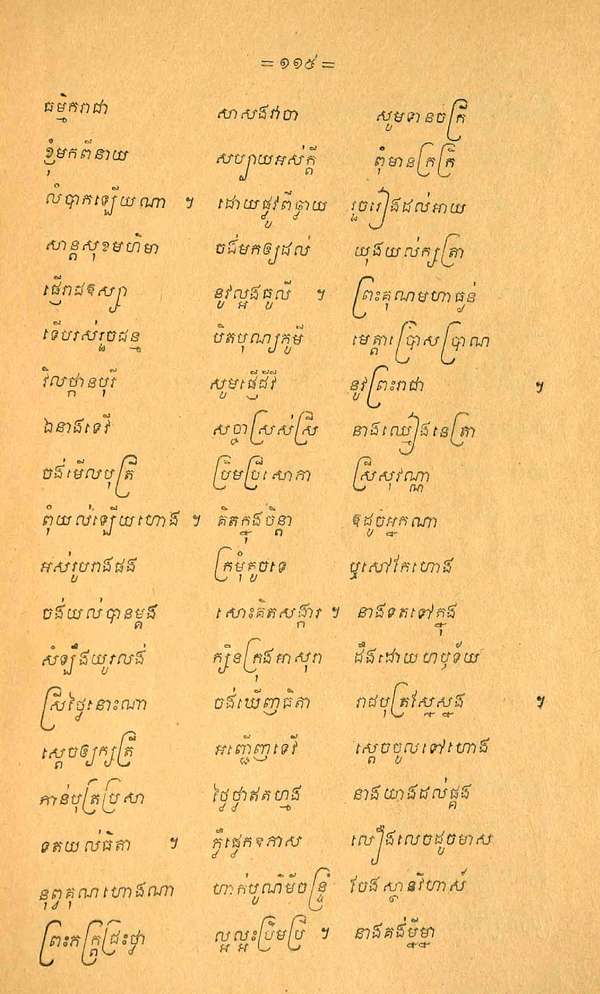 = ១១៥ =
ធម្មិករាជា សាសងវាចា សូមទានចក្រី
ខ្ញុំមកពីនាយ សប្បាយអស់ក្តី ពុំមានក្រក្រី
លំបាកឡើយណា ។ ដោយផ្លូវពីធ្វាយ រួចរៀងដល់អាយ
សាន្តសុខមហិមា ចង់មកឲ្យដល់ យុងយល់ក្សត្រា
ផ្ញើរាជឱស្សា នូវល្អងធូលី ។ ព្រះគុណមហាធ្ងន់
ទើបរស់រួចជន្ម បិតបុណ្យភូមី មេត្តាប្រោសប្រាណ
វិលថ្កានបុរី សូមផ្ញើជីវី នូវព្រះរាជា ។
ឯនាងទេវី សច្ចាស្រស់ស្រី នាងឈ្មៀងនេត្រា
ចង់មើលបុត្រី ប្រិមប្រីសោភា ស្រីសុវណ្ណា
ពុំយល់ឡើយហោង ។ គិតក្នុងចិន្តា ឱដូចអ្នកណា
អស់រូបរាងផង ក្រមុំតូចទេ ឬសៅកែហោង
ចង់យល់បានម្តង សោះគិតសង្ការ ។ នាងទតទៅក្នុង
សំឡឹងយូរលង់ ក្បិនក្រុងអាសុរា ដឹងដោយហឫទ័យ
ស្រីថ្លៃនោះណា ចង់ឃើញធិតា រាជបុត្រស្នៃស្នង ។
ស្តេចឲ្យក្សត្រី អញ្ជើញទេវី ស្តេចចូលទៅហោង
កាន់បុត្រប្រសា ថ្លៃថ្លាឥតហ្មង នាងយាងដល់ផ្គង
ទតយល់ធិតា ។ ភ្លឺផ្លេកឱភាស លឿងលេចដូចមាស
នុព្វគុណហោងណា ហាក់បូណ៌មីចន្ទ្រ ចែងស្ថានវិហាស៍
ព្រះភក្ត្រជ្រះថ្លា ល្អល្អះប្រិមប្រី ។ នាងគង់ម្នីម្នា